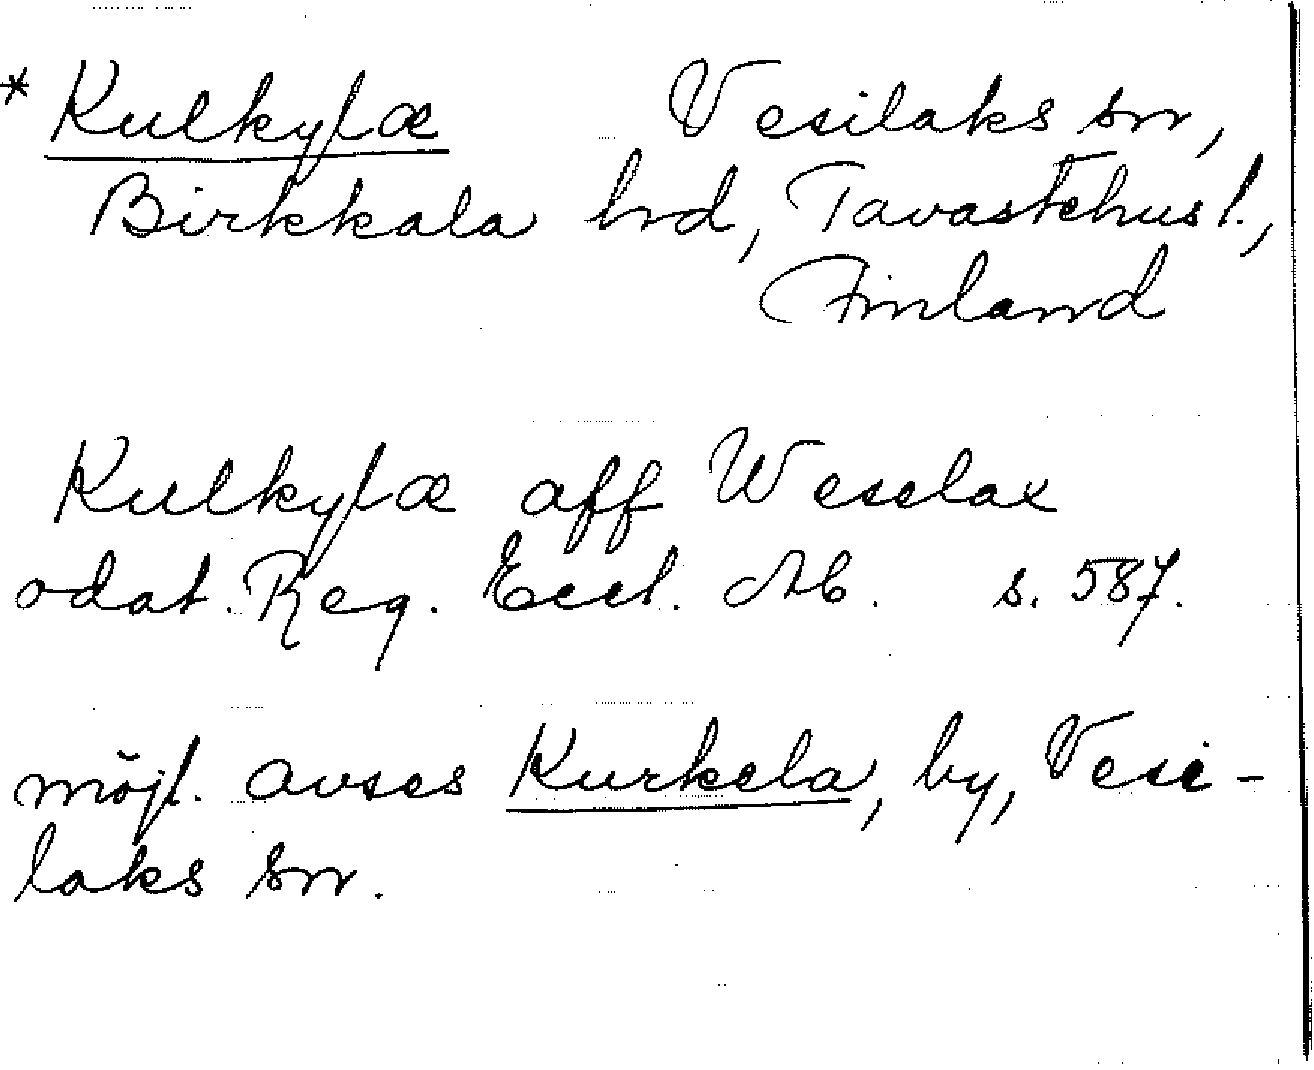 * Kulkylæ Vesilaks sn,
Birkkala hrd, Tavastehus l.,
Finland
Kulkylæ aff Weselax
odat. Reg. Eccl. Ab. s. 587.
möjl. avses Kurkela, by, Vesi-
laks sn.